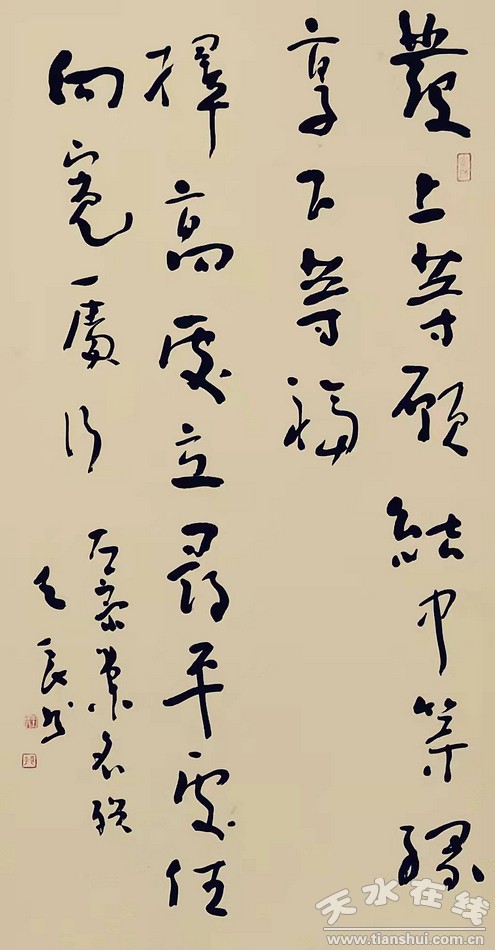 發上等願結中等緣
享下等福
擇高處立尋平處住
向寬處行
左宗棠名聯
天水在线
www.tianshui.com.cn